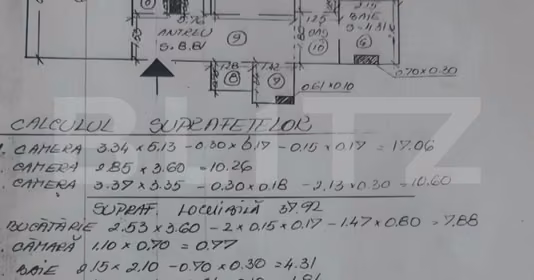 8
3.70
1.25
2.15
BAIE
S=4.31
ANTREU
S=8.81
9
BAG
10
6
1.28
1.42
8
7
0.70 x 0.30
0.61 x 0.10
BLITZ
CALCULUL SUPRAFEȚELOR
1. CAMERA 3.34 x 5.13 - 0.30 x 0.17 - 0.15 x 0.17 = 17.06
. CAMERA 2.85 x 3.60 = 10.26
. CAMERA 3.37 x 3.35 - 0.30 x 0.18 - 2.13 x 0.30 = 10.60
SUPRAF. LOCUIBILĂ 37.92
BUCĂTĂRIE 2.53 x 3.60 - 2 x 0.15 x 0.17 - 1.47 x 0.80 = 7.88
. CĂMARĂ 1.10 x 0.70 = 0.77
BAIE 2.15 x 2.10 - 0.70 x 0.30 = 4.31